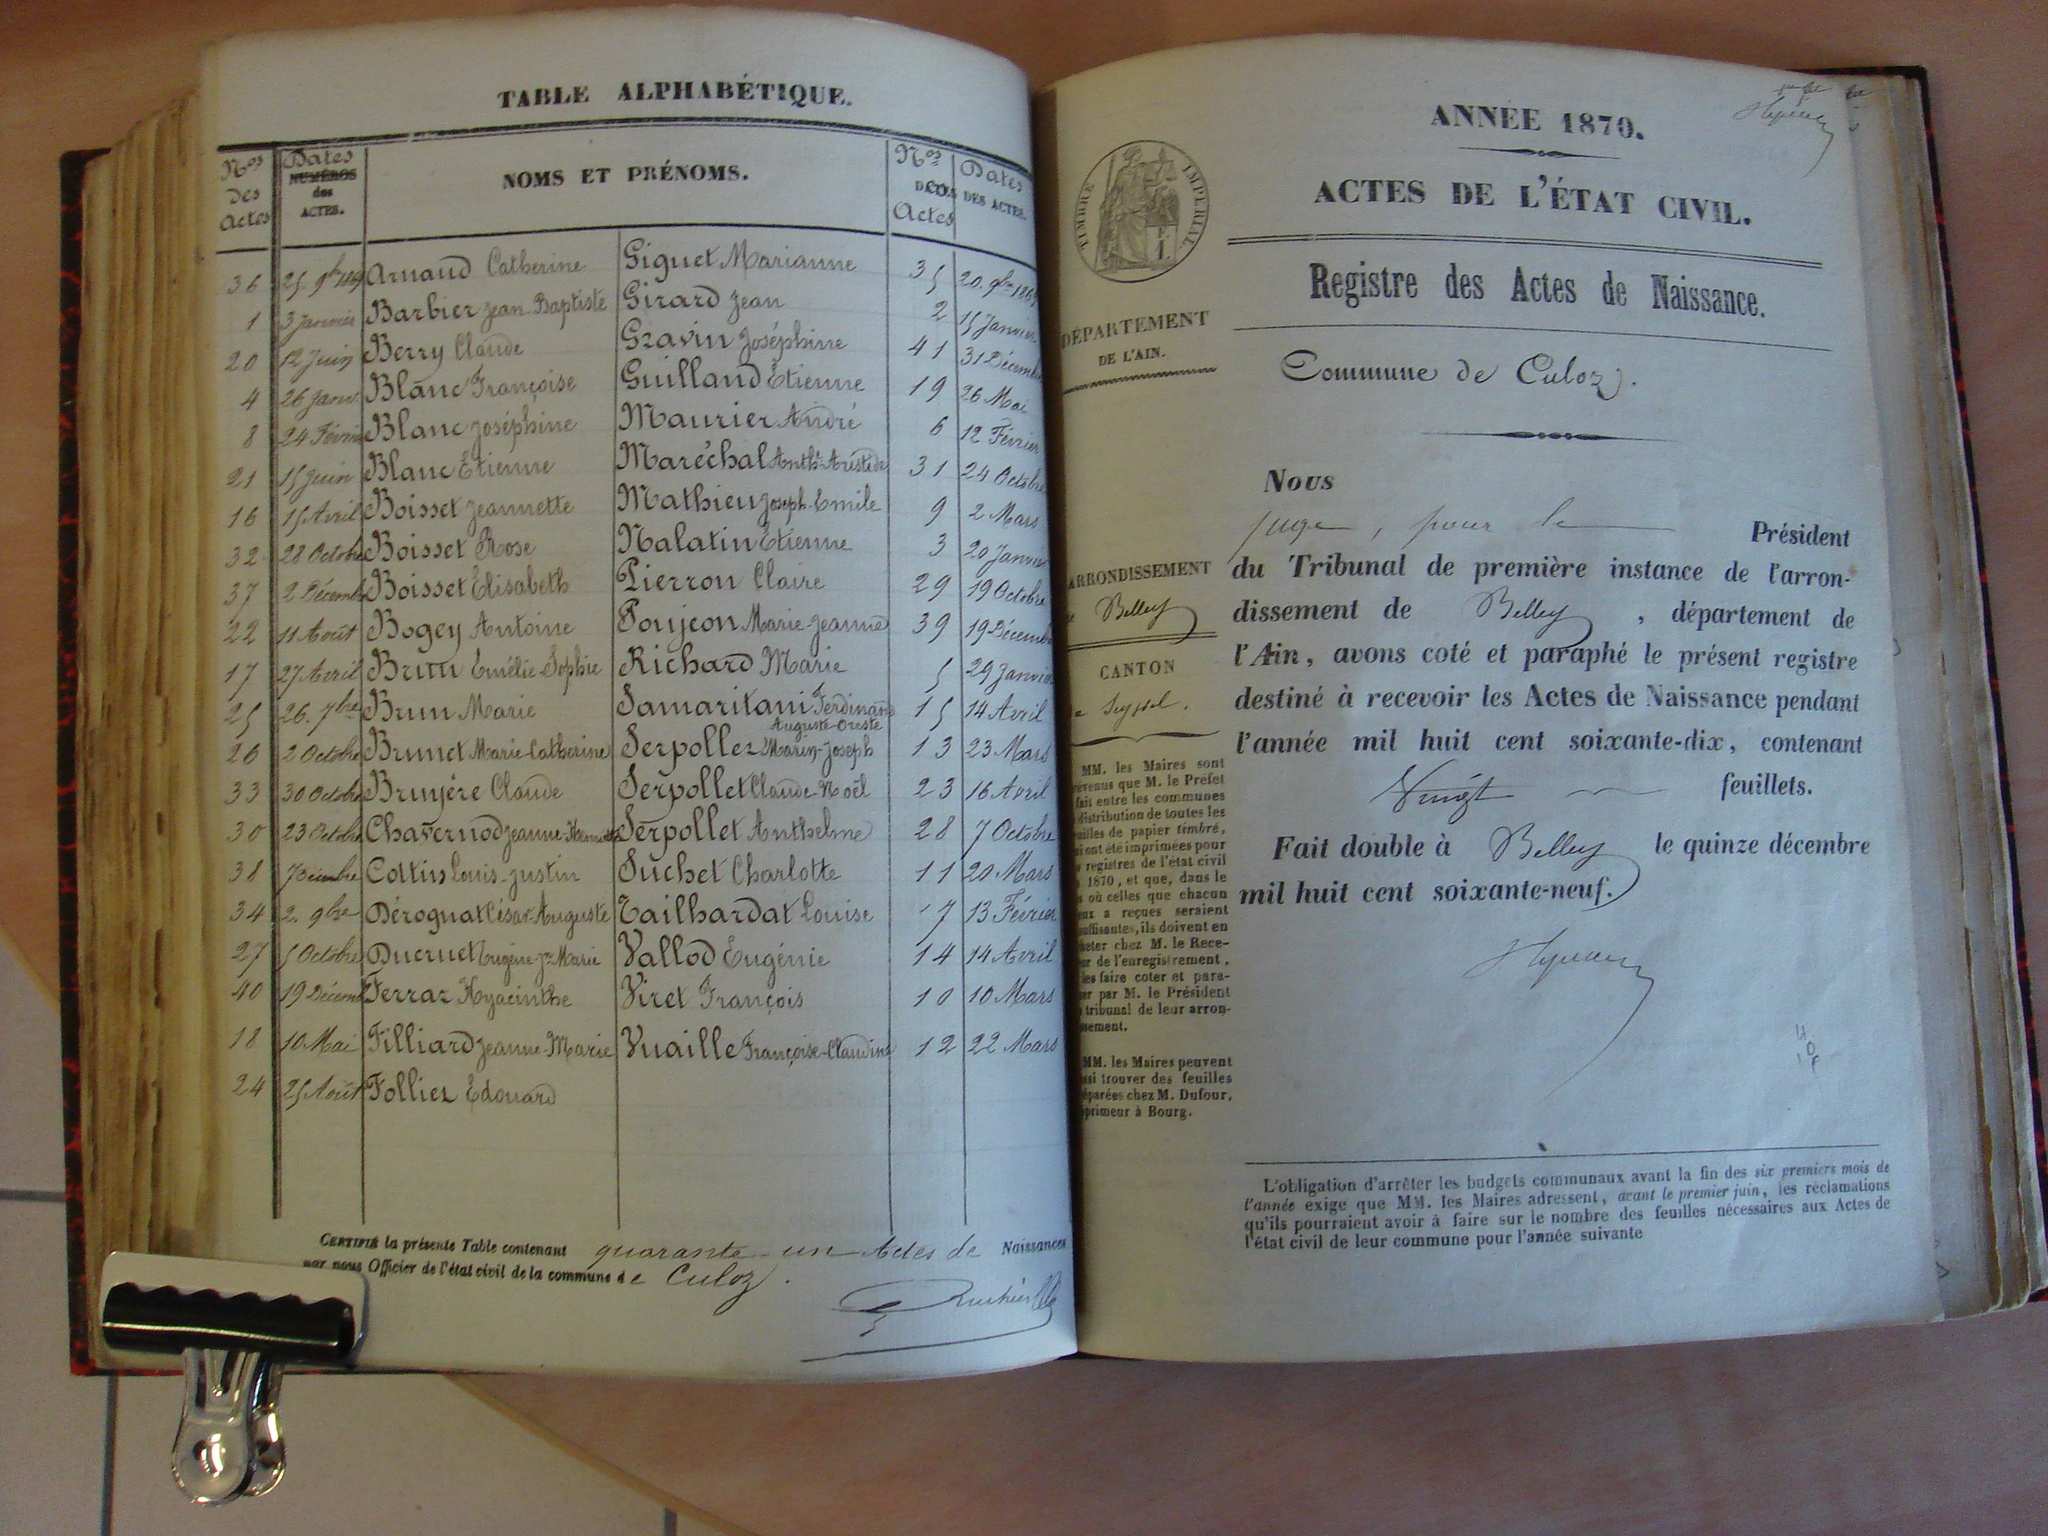 TABLE ALPHABÉTIQUE.
Nos des Actes
Dates NUMÉROS des ACTES.
NOMS ET PRÉNOMS.
Nos DES Actes
Dates DES ACTES.
36 25 9bre 1869 Arnaud Catherine Giguet Marianne 35 20 9bre 1869
1 3 Janvier Barbier Jean-Baptiste Girard Jean 2 15 Janvier
20 12 Juin Berry Claude Gravin Joséphine 41 31 Décembre
4 26 Janv. Blanc Françoise Guilland Etienne 19 26 Mai
8 24 Février Blanc Joséphine Maurier André 6 12 Février
21 15 Juin Blanc Etienne Maréchal Anth. Aristide 31 24 Octobre
16 15 Avril Boisset Jeannette Mathieu Joseph-Emile 9 2 Mars
32 28 Octobre Boisset Rose Nalatin Etienne 3 20 Janvier
37 2 Décembre Boisset Elisabeth Pierron Claire 29 19 Octobre
22 11 Août Bogey Antoine Poujeon Marie-Jeanne 39 19 Décembre
17 27 Avril Brun Emélie-Sophie Richard Marie 5 29 Janvier
25 26 7bre Brun Marie Samaritani Ferdinand Auguste-Oreste 15 14 Avril
26 2 Octobre Brunet Marie-Catherine Serpollet Marin-Joseph 13 23 Mars
33 30 Octobre Bruyère Claude Serpollet Claude-Noël 23 16 Avril
30 23 Octobre Chavernod Jeanne Serpollet Anthelme 28 7 Octobre
38 7 Décembre Cottin Louis-Justin Suchet Charlotte 11 20 Mars
34 2 9bre Dérognat César-Auguste Tailhardat Louise 7 13 Février
27 5 Octobre Ducruet Eugène Marie Vallod Eugénie 14 14 Avril
40 19 Décemb Ferrar Hyacinthe Viret François 10 10 Mars
18 10 Mai Filliard Jeanne-Marie Vuaille Françoise-Claudine 12 22 Mars
24 25 Août Folliet Edouard
CERTIFIÉ la présente Table contenant quarante-un Actes de Naissances
par nous Officier de l'état civil de la commune de Culoz.
ANNÉE 1870.
ACTES DE L'ÉTAT CIVIL.
TIMBRE IMPERIAL
Registre des Actes de Naissance.
DÉPARTEMENT
DE L'AIN.
Commune de Culoz.
ARRONDISSEMENT
de Belley
CANTON
de Seyssel.
MM. les Maires sont
prévenus que M. le Préfet
fait entre les communes
distribution de toutes les
feuilles de papier timbré,
qui ont été imprimées pour
registres de l'état civil
1870, et que, dans le
cas où celles que chacun
d'eux a reçues seraient
insuffisantes, ils doivent en
acheter chez M. le Rece-
veur de l'enregistrement,
les faire coter et para-
pher par M. le Président
tribunal de leur arron-
dissement.
MM. les Maires peuvent
aussi trouver des feuilles
préparées chez M. Dufour,
imprimeur à Bourg.
Nous
juge, pour le Président
du Tribunal de première instance de l'arron-
dissement de Belley, département de
l'Ain, avons coté et paraphé le présent registre
destiné à recevoir les Actes de Naissance pendant
l'année mil huit cent soixante-dix, contenant
Vingt feuillets.
Fait double à Belley le quinze décembre
mil huit cent soixante-neuf.
L'obligation d'arrêter les budgets communaux avant la fin des six premiers mois de
l'année exige que MM. les Maires adressent, avant le premier juin, les réclamations
qu'ils pourraient avoir à faire sur le nombre des feuilles nécessaires aux Actes de
l'état civil de leur commune pour l'année suivante